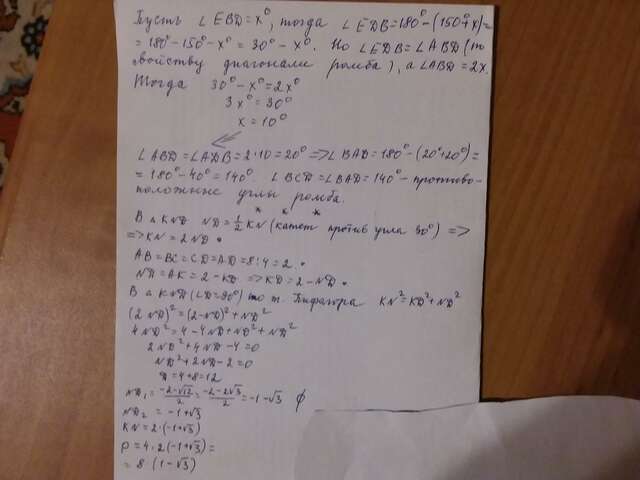 Пусть ∠EBD=x°, тогда ∠EDB=180°-(150°+x)=
=180°-150°-x°=30°-x°. Но ∠EDB=∠ABD (по
свойству диагонали ромба), а ∠ABD=2x.
Тогда 30°-x°=2x°
3x°=30°
x=10°
∠ABD=∠ADB=2·10=20° => ∠BAD=180°-(20°+20°)=
=180°-40°=140°. ∠BCD=∠BAD=140°-противо-
положные углы ромба.
В △KND ND=½KN (катет против угла 30°) =>
=> KN=2ND.
AB=BC=CD=AD=8:4=2.
ND=AK=2-KD => KD=2-ND.
В △KND (∠D=90°) по т. Пифагора KN²=KD²+ND²
(2ND)²=(2-ND)²+ND²
4ND²=4-4ND+ND²+ND²
2ND²+4ND-4=0
ND²+2ND-2=0
D=4+8=12
ND₁=(-2-√12)/2=(-2-2√3)/2=-1-√3 ∅
ND₂=-1+√3
KN=2·(-1+√3)
P=4·2(-1+√3)=
=8·(1-√3)